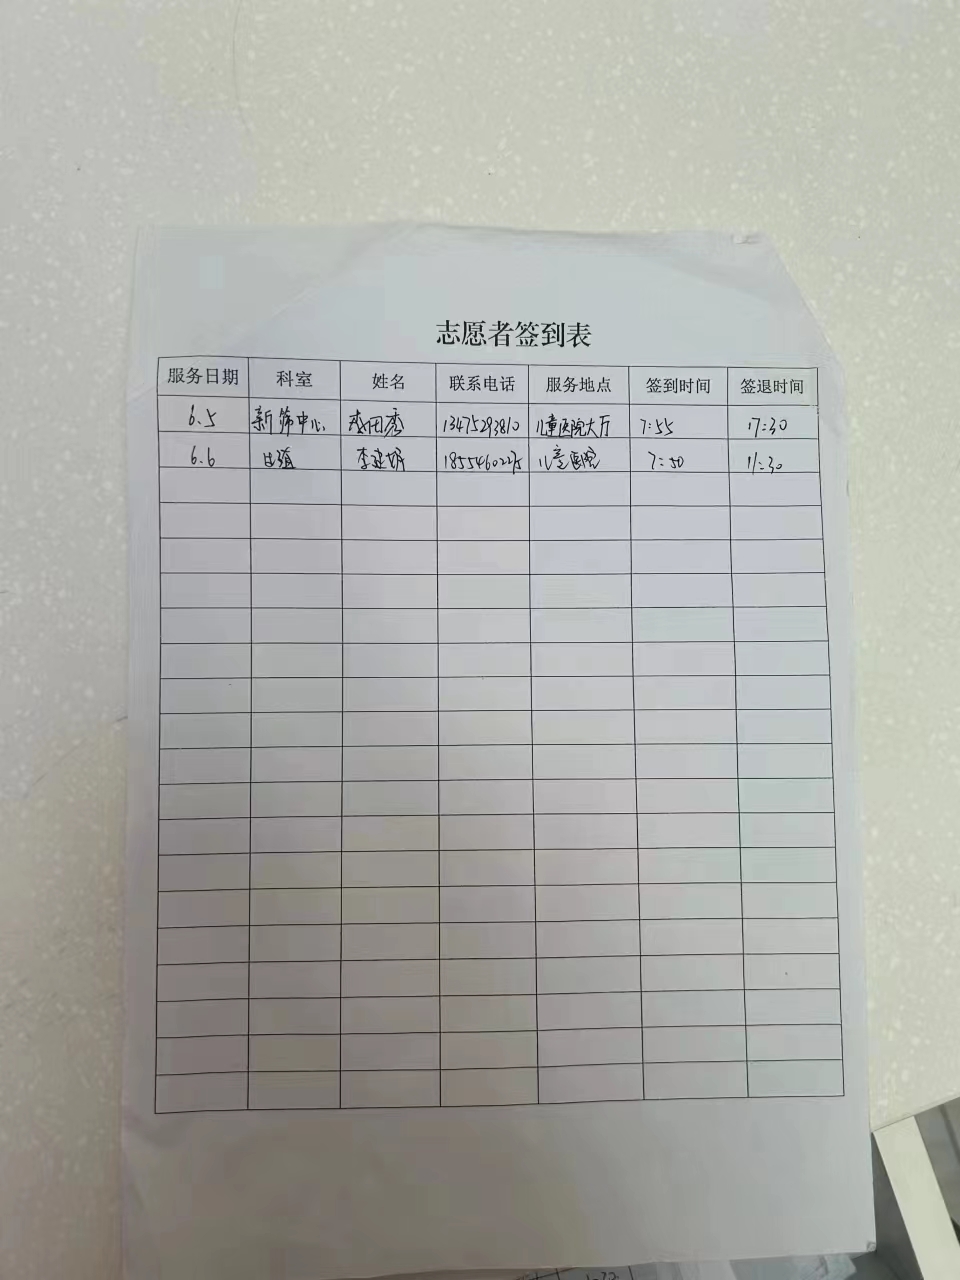 志愿者签到表
服务日期 科室 姓名 联系电话 服务地点 签到时间 签退时间
6.5 新筛中心 田秀 13475293810 儿童医院大厅 7:55 17:30
6.6 李 儿童医院 7:50 11:30